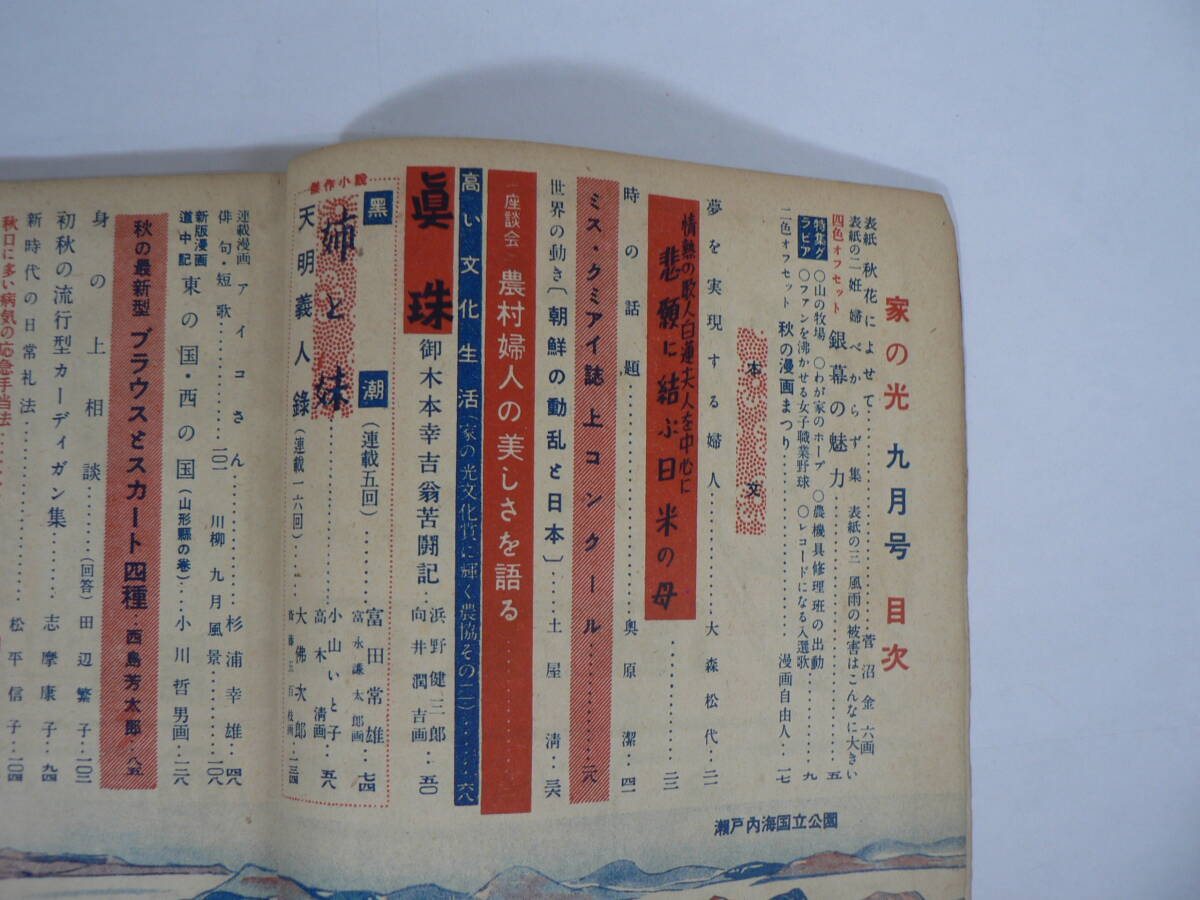 家の光 九月号 目次
表紙 秋花によせて‥‥‥‥菅沼金六画
表紙の二 妊婦べからず集 表紙の三 風雨の被害はこんなに大きい
四色オフセット 銀幕の魅力‥‥‥‥五
特集グラビア 〇山の牧場 〇わが家のホープ 〇農機具修理班の出動
〇ファンを沸かせる女子職業野球 〇レコードになる入選歌‥‥九
二色オフセット 秋の漫画まつり‥‥‥‥漫画自由人‥‥一七
本文
夢を実現する婦人‥‥‥‥大森松代‥二一
情熱の歌人白蓮夫人を中心に
悲願に結ぶ日米の母‥‥二二
時の話題‥‥‥‥奥原潔‥四一
ミス・クミアイ誌上コンクール‥‥‥‥二八
世界の動き〔朝鮮の動乱と日本〕‥‥‥‥土屋清‥三六
座談会 農村婦人の美しさを語る‥‥‥‥
高い文化生活(家の光文化賞に輝く農協その二)‥‥‥‥六八
眞珠 御木本幸吉翁苦闘記‥‥浜野健三郎
向井潤吉画‥‥五〇
傑作小說
黑潮(連載五回)‥‥‥‥富田常雄
富永謙太郎画‥‥七四
姉と妹‥‥‥‥小山いと子
高木清画‥‥五八
天明義人錄(連載一六回)‥‥大佛次郎
‥一三四
連載漫画 アイコさん‥‥‥‥杉浦幸雄‥四八
俳句・短歌‥‥一〇二 川柳 九月風景‥‥一〇八
新版漫画道中記 東の国・西の国(山形縣の巻)‥‥小川哲男画‥‥一二八
秋の最新型 ブラウスとスカート四種‥西島芳太郎‥八五
身の上相談‥‥‥‥(回答)田辺繁子‥一〇二
初秋の流行型カーディガン集‥‥‥‥志摩康子‥九四
新時代の日常礼法‥‥‥‥松平信子‥一〇四
秋口に多い病気の応急手当法‥‥
瀬戸内海国立公園